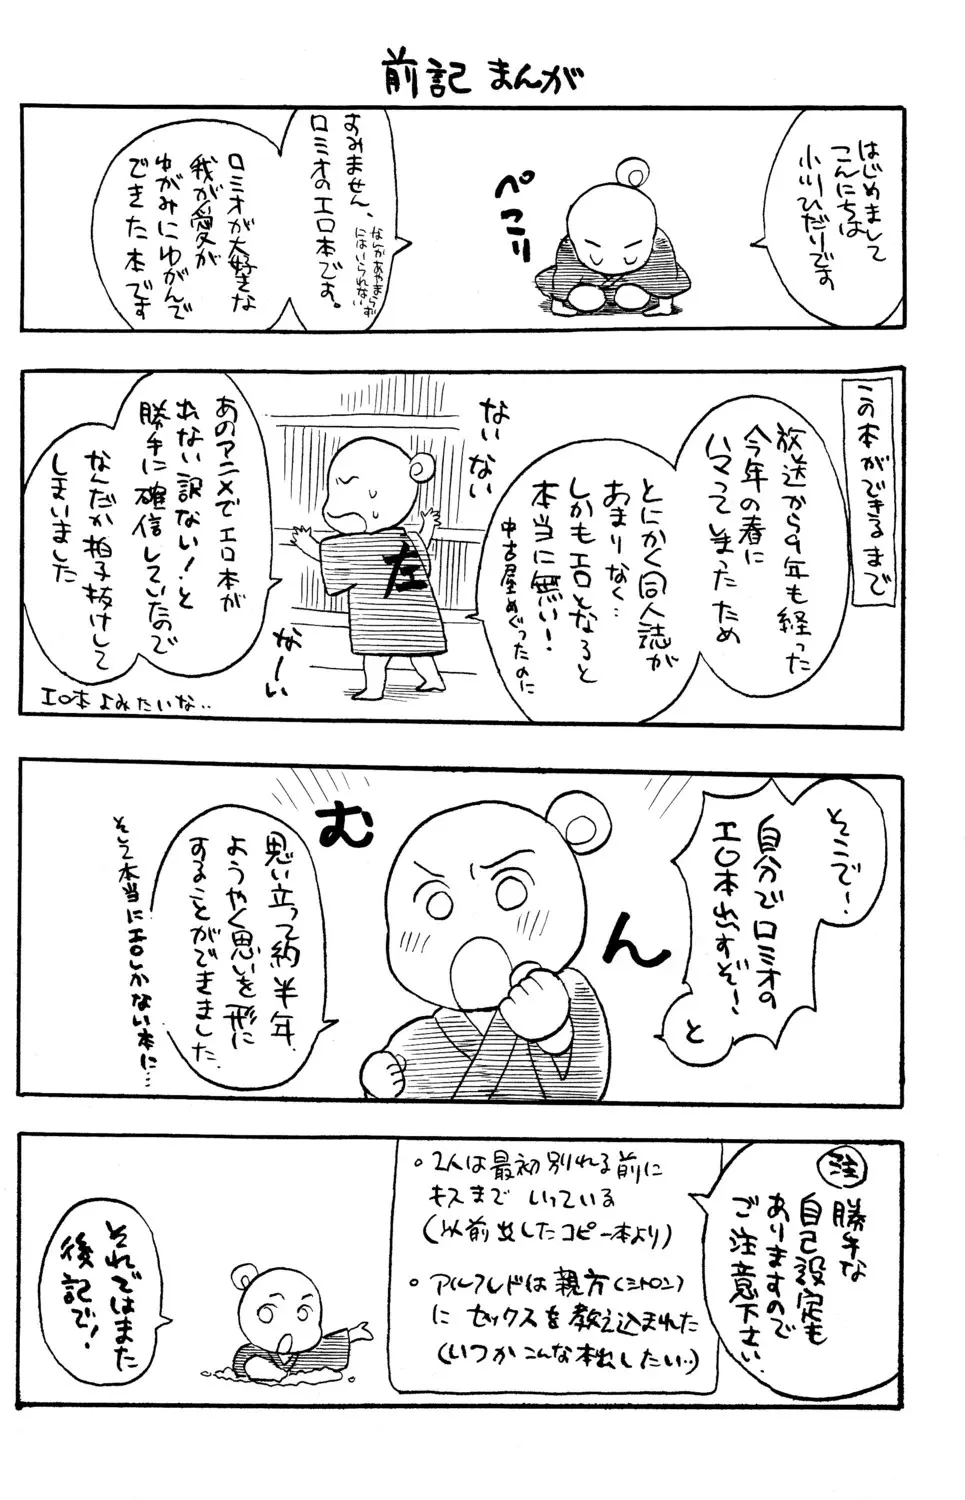 前記まんが
はじめまして
こんにちは
小川ひだりです
ぺこり
すみません、
ロミオのエロ本です。
なんかあやまらず
にはいられない
ロミオが大好きな
我が愛が
ゆがみにゆがんで
できた本です
この本ができるまで
放送から9年も経った
今年の春に
ハマってしまったため
とにかく同人誌が
あまりなく…
しかもエロとなると
本当に無い!
中古屋めぐったのに
ないない
なーい
左
あのアニメでエロ本が
出ない訳ない!と
勝手に確信していたので
なんだか拍子抜けして
しまいました
エロ本よみたいな..
そこで!
自分でロミオの
エロ本出すぞ!
と
むん
思い立って約半年
ようやく思いを形に
することができました
そして本当にエロしかない本に…
注
勝手な
自己設定も
ありますので
ご注意下さい
。2人は最初別れる前に
キスまでいっている
(以前出したコピー本より)
。アルフレドは親方(ミトロン)
にセックスを教え込まれた
(いつかこんな本出したい..)
それではまた
後記で!